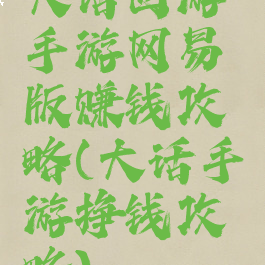 大话西游
手游网易
版赚钱攻
略(大话手
游挣钱攻
略)